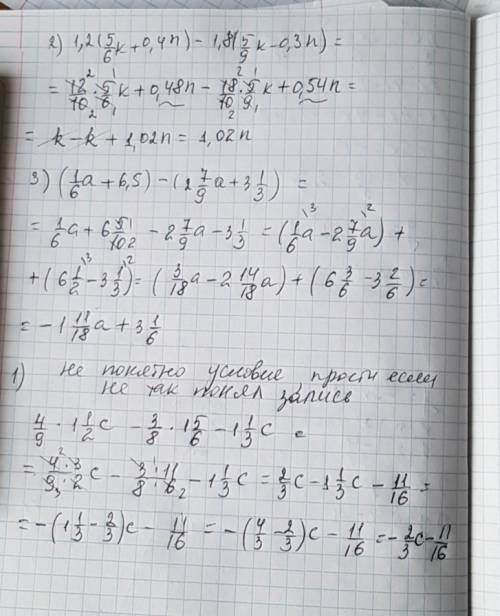 2) 1,2(5/6k+0,4n)-1,8(5/9k-0,3n)=
= 12/10·5/6k+0,48n-18/10·5/9k+0,54n=
= k-k+1,02n=1,02n
3) (1/6a+6,5)-(2 7/9a+3 1/3) =
= 1/6a+6 5/10-2 7/9a-3 1/3=(1/6a-2 7/9a)+
+(6 1/2-3 1/3)=(3/18a-2 14/18a)+(6 3/6-3 2/6)=
= -1 11/18a+3 1/6
1) не понятно условие, прости если
не так понял запись
4/9·1 1/2c-3/8·1 5/6-1 1/3c =
= 4·3/9·2c-3·11/8·6-1 1/3c=2/3c-1 1/3c-11/16=
= -(1 1/3-2/3)c-11/16=-(4/3-2/3)c-11/16=-2/3c-11/16